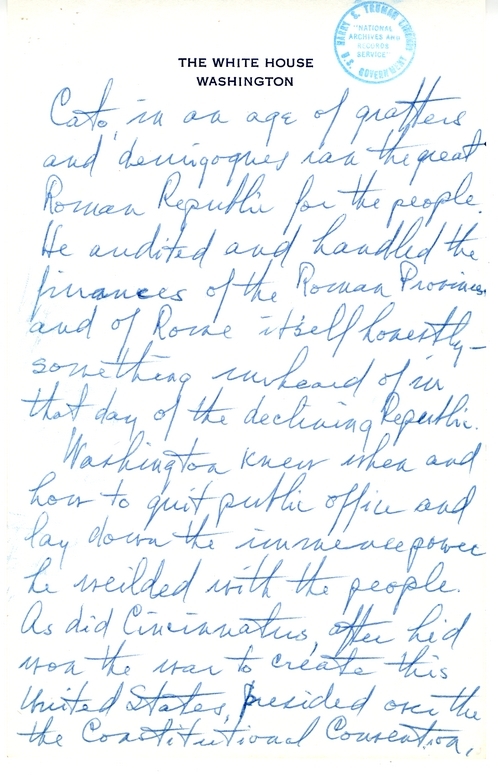 HARRY S. TRUMAN LIBRARY
"NATIONAL
ARCHIVES AND
RECORDS
SERVICE"
U.S. GOVERNMENT
THE WHITE HOUSE
WASHINGTON
Cato, in an age of grafters
and demigogues ran the great
Roman Republic for the people.
He audited and handled the
finances of the Roman Provinces
and of Rome itself honestly—
something unheard of in
that day of the declining Republic.
Washington knew when and
how to quit public office and
lay down the immense power
he weilded with the people.
As did Cincinnatus, after he'd
won the war to create this
United States, presided over the
the Constitutional Convention,